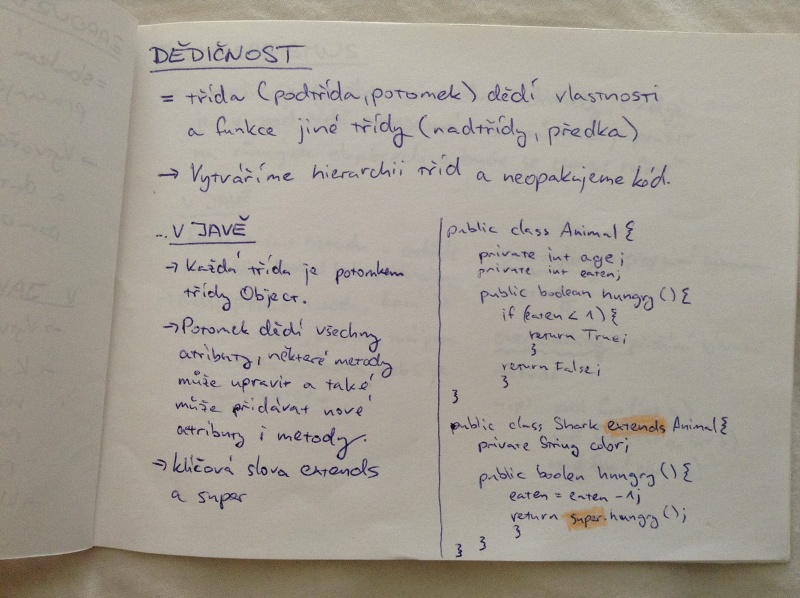 DĚDIČNOST
= třída (podtřída, potomek) dědí vlastnosti
a funkce jiné třídy (nadtřídy, předka)
→ Vytváříme hierarchii tříd a neopakujeme kód.
... V JAVĚ
→ Každá třída je potomkem
třídy Object.
→ Potomek dědí všechny
atributy, některé metody
může upravit a také
může přidávat nové
atributy i metody.
→ klíčová slova extends
a super
public class Animal {
private int age;
private int eaten;
public boolean hungry () {
if (eaten < 1) {
return True;
}
return False;
}
}
public class Shark extends Animal {
private String color;
public boolen hungry () {
eaten = eaten -1;
return super.hungry ();
}
} }